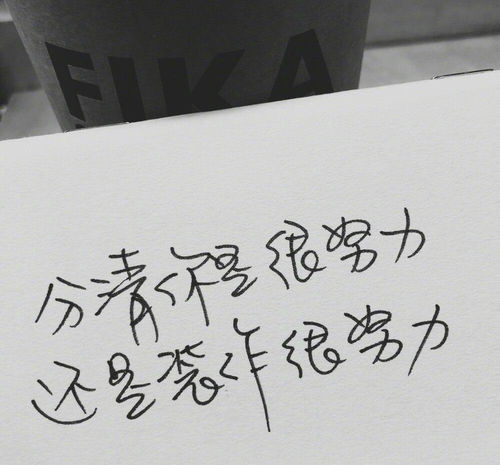 FIKA
分清你是很努力
还是装作很努力